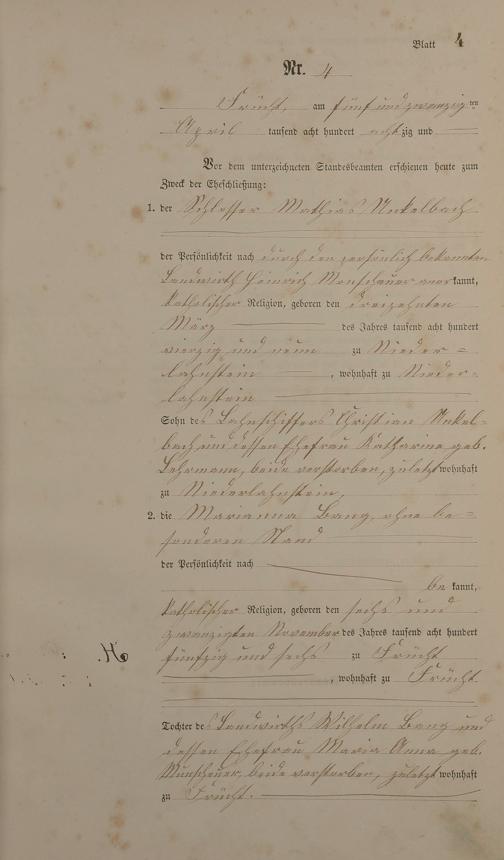 Blatt 4
Nr. 4
Frücht, am fünf und zwanzig ten
April tausend acht hundert achtzig und
Vor dem unterzeichneten Standesbeamten erschienen heute zum
Zweck der Eheschließung:
1. der Schlosser Mathias Unkelbach
der Persönlichkeit nach durch den persönlich bekannten
Landwirth Heinrich Monschauer anerkannt,
katholischer Religion, geboren den dreizehnten
März des Jahres tausend acht hundert
vierzig und neun zu Nieder=
lahnstein, wohnhaft zu Nieder=
lahnstein
Sohn des Lahnschiffers Christian Unkel=
bach und dessen Ehefrau Katharine geb.
Lehrmann, beide verstorben, zuletzt wohnhaft
zu Niederlahnstein,
2. die Marianna Bang, ohne be=
sonderen Stand
der Persönlichkeit nach
be kannt,
katholischer Religion, geboren den sechs und
zwanzigten November des Jahres tausend acht hundert
fünfzig und sechs zu Frücht
, wohnhaft zu Frücht
Tochter des Landwirths Wilhelm Bang und
dessen Ehefrau Maria Anna geb.
beide verstorben, zuletzt wohnhaft
zu Frücht.